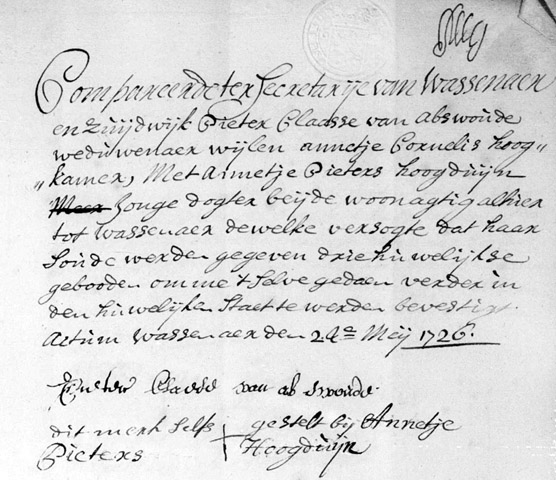 Compareerde ter Secretarije van Wassenaer
en Zuijdwijk Pieter Claasse van Abswoude
weduwenaer wijlen annetje Cornelis hoog„
„kamer, Met Annetje Pieters hoogduijn
Meer Jonge dogter beijde woonagtig alhier
tot Wassenaer dewelke versogte dat haar
Soude werden gegeven drie huwelijkse
gebooden omme 't Selve gedaen verder in
den huwelijken Staet te werden bevestigt.
Actum Wassenaer den 24en Meij 1726.
Pieter Claesse van abswoude
dit merk Selfs + gestelt bij Annetje
Pieters Hoogduijn